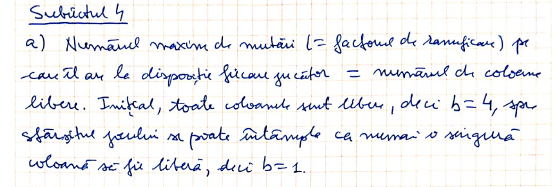 Subiectul 4
a) Numărul maxim de mutări (= factorul de ramificare) pe
care îl are la dispoziție fiecare jucător = numărul de coloane
libere. Inițial, toate coloanele sunt libere, deci b=4, spre
sfârșitul jocului se poate întâmpla ca numai o singură
coloană să fie liberă, deci b=1.